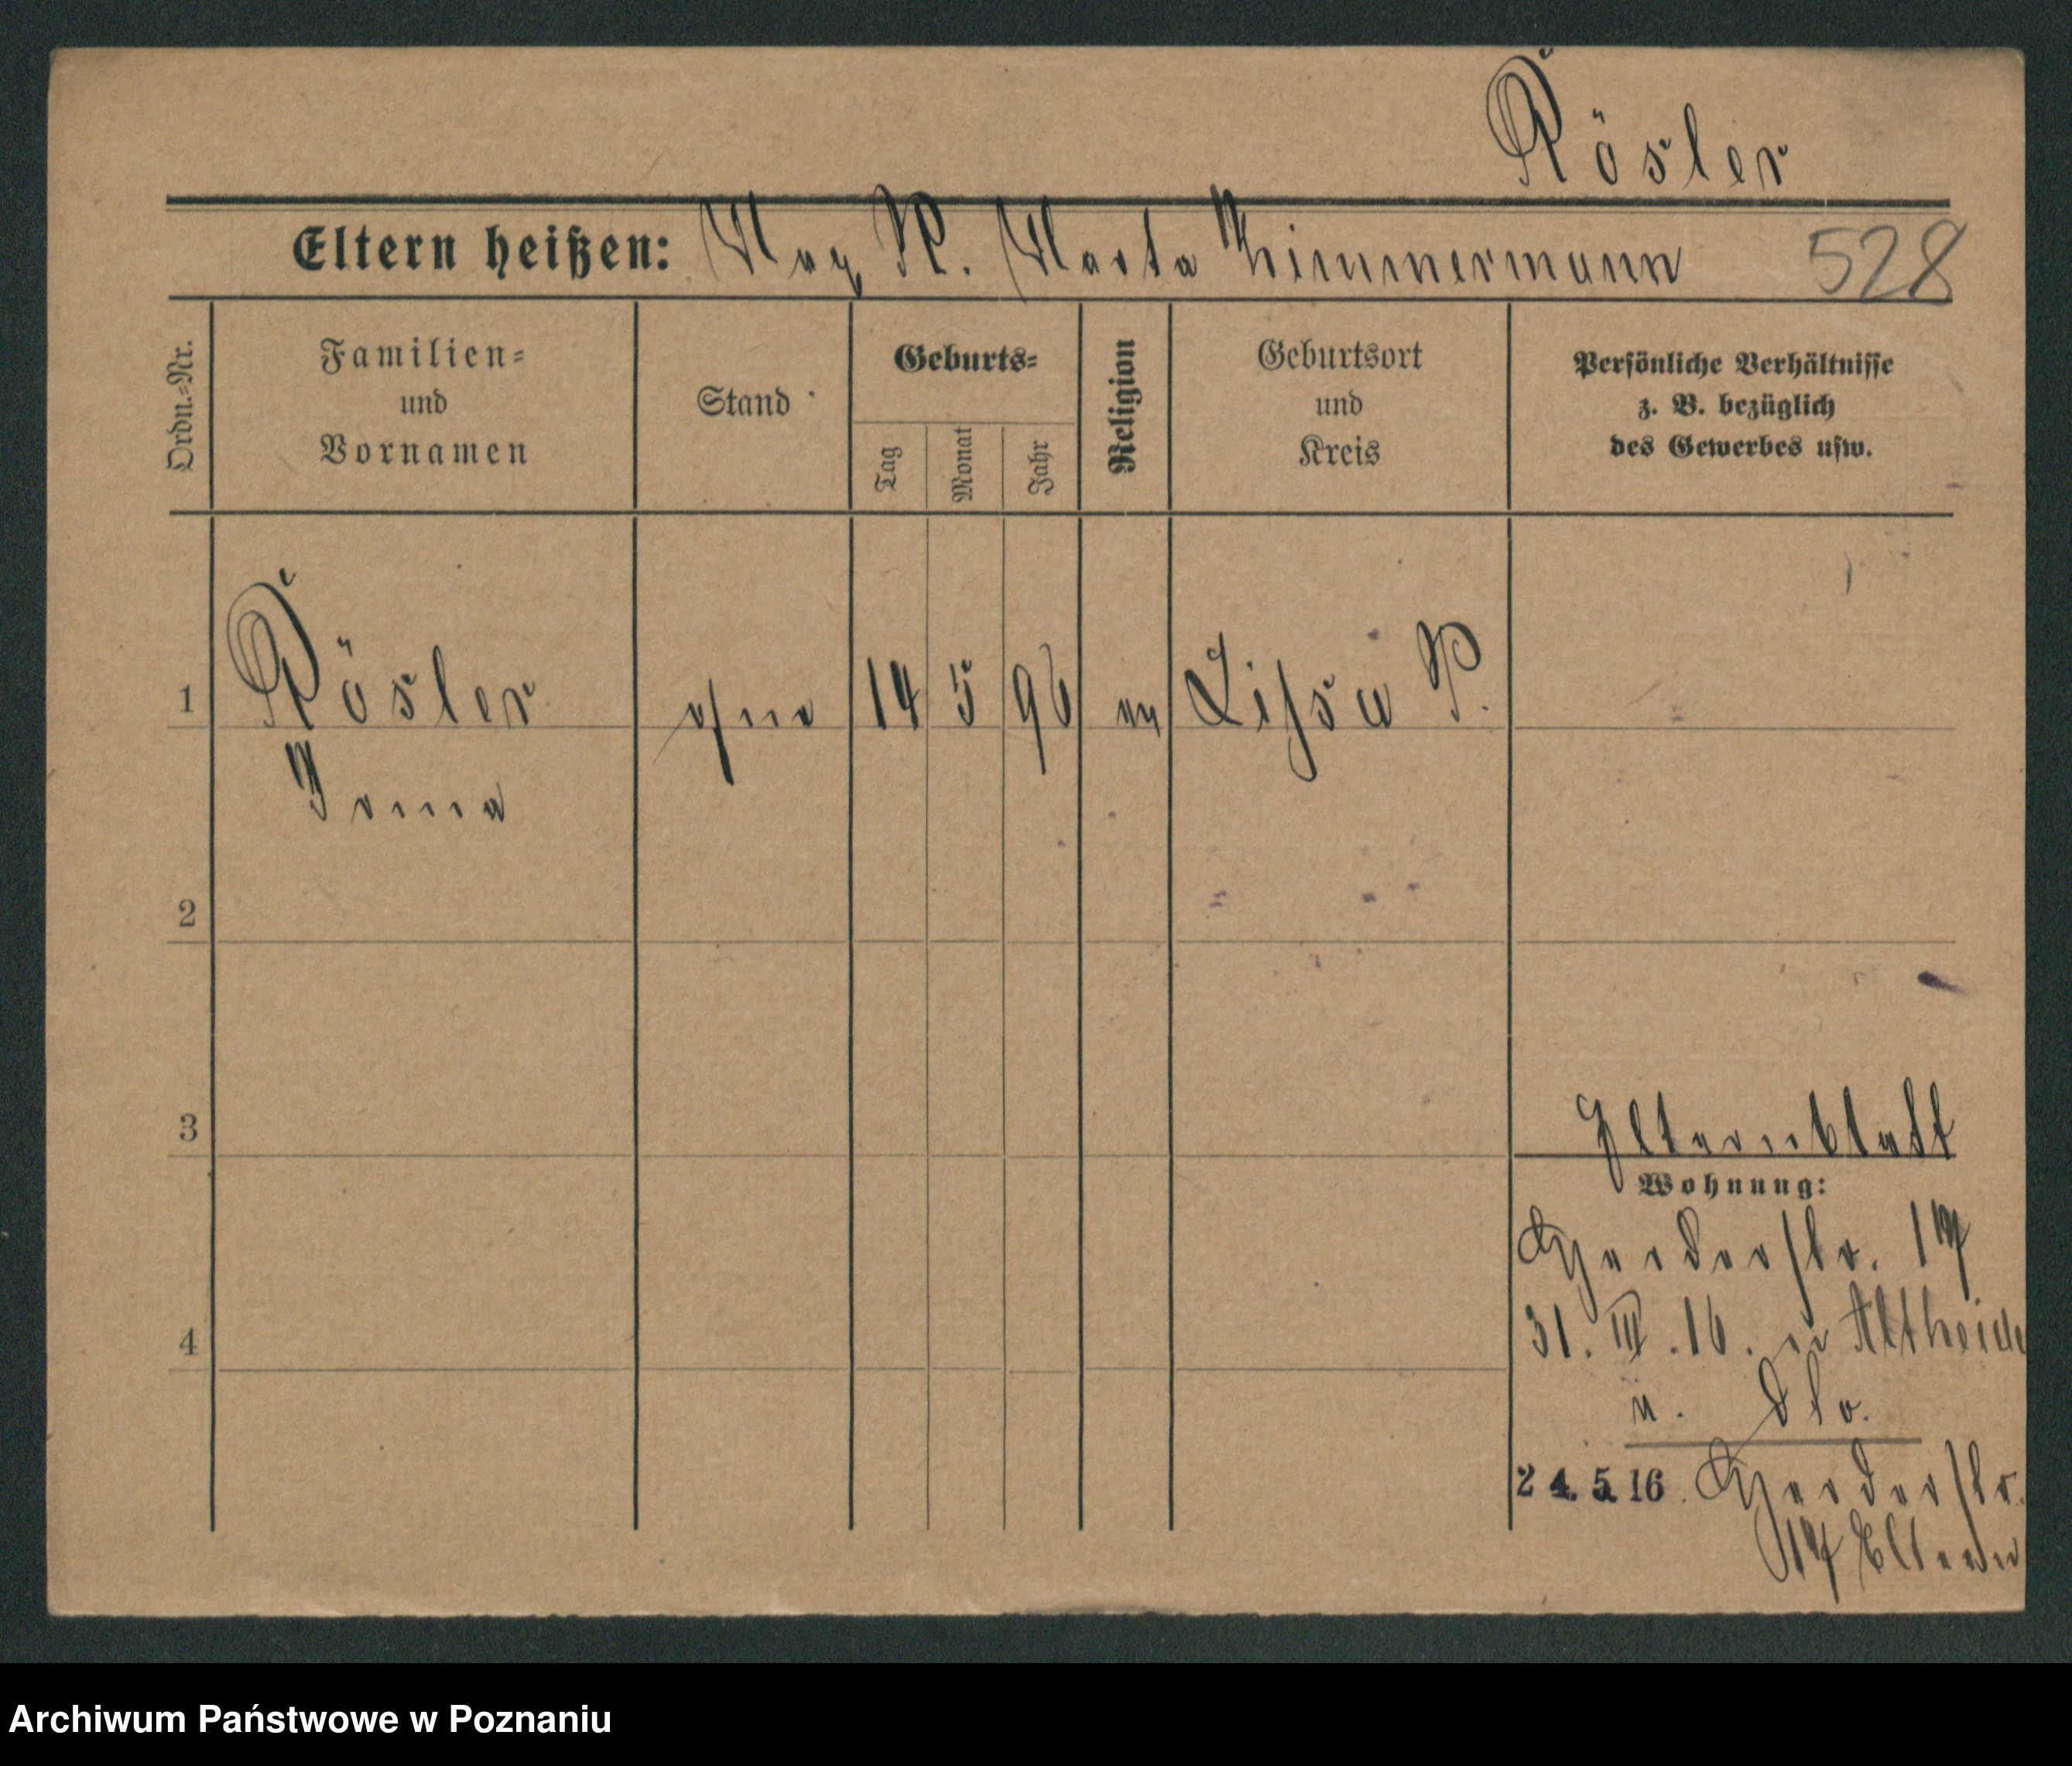 Rösler
Eltern heißen: Max R. Marta Zimmermann 528
Ordn.-Nr. Familien- und Vornamen Stand Geburts- Tag Monat Jahr Religion Geburtsort und Kreis Persönliche Verhältnisse z. B. bezüglich des Gewerbes usw.
1 Rösler ohne 14 5 96 ev Lissa P.
Irma
2
3
Elternblatt
Wohnung:
Herderstr. 17
31. III. 16. Altheide
4
24.5.16. Herderstr.
17 Eltern
Archiwum Państwowe w Poznaniu